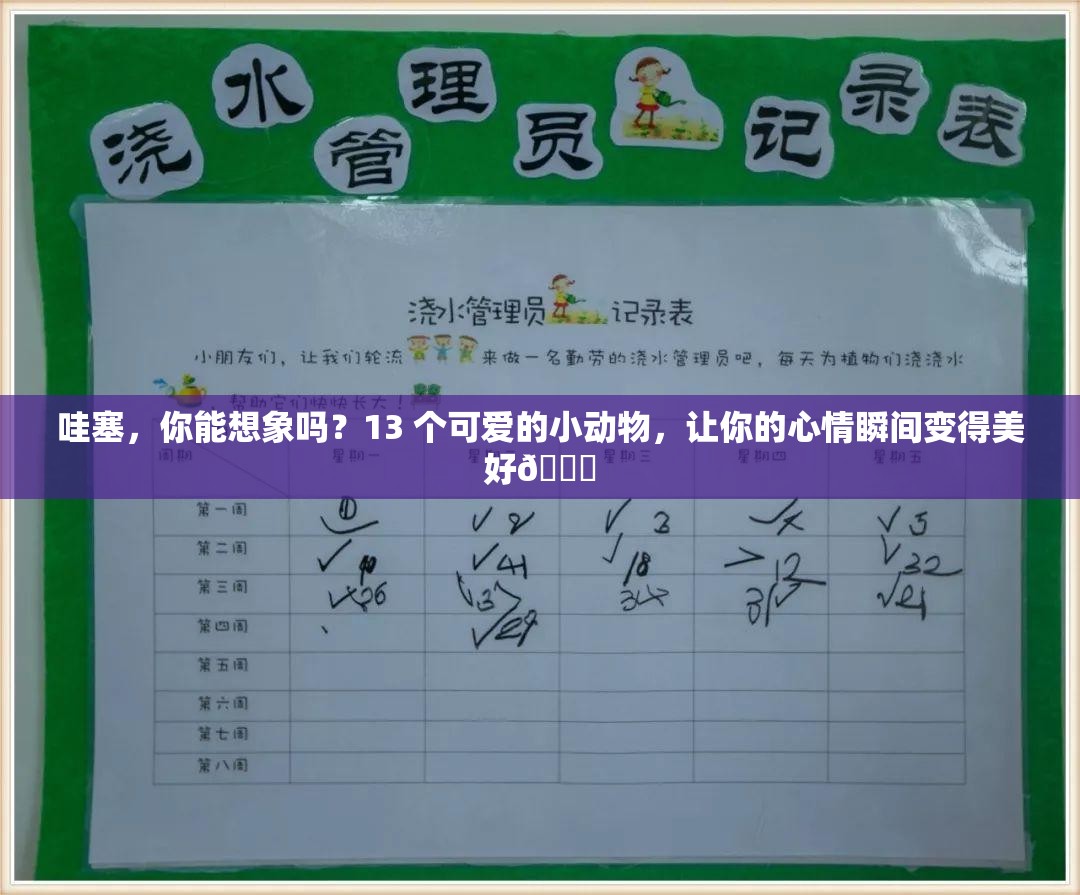 浇水管理员记录表
浇水管理员记录表
小朋友们，让我们轮流来做一名勤劳的浇水管理员吧，每天为植物们浇浇水
帮助它们快快长大！
哇塞，你能想象吗？13 个可爱的小动物，让你的心情瞬间变得美
好ð
周期 星期一 星期二 星期三 星期四 星期五
第一周 ① ✓ 2 ✓ 3 ✓ 5
第二周 ✓ ✓ 41 ✓ 18 12 ✓ 32
第三周 26 3 31 ✓ 21
第四周 ✓ 29
第五周
第六周
第七周
第八周